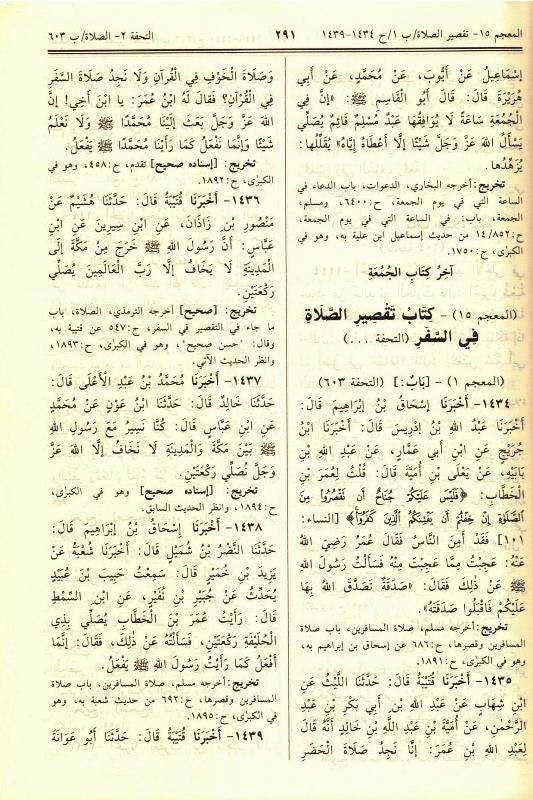 المعجم ١٥- تقصير الصلاة/ ب ١/ ح ١٤٣٤-١٤٣٩
٢٩١
التحفة ٢- الصلاة/ ب ٦٠٣
إِسْمَاعِيلُ عَنْ أَيُّوبَ، عَنْ مُحَمَّدٍ، عَنْ أَبِي
هُرَيْرَةَ قَالَ: قَالَ أَبُو الْقَاسِمِ ﷺ: «إِنَّ فِي
الْجُمُعَةِ سَاعَةً لَا يُوَافِقُهَا عَبْدٌ مُسْلِمٌ قَائِمٌ يُصَلِّي
يَسْأَلُ اللهَ عَزَّ وَجَلَّ شَيْئًا إِلَّا أَعْطَاهُ إِيَّاهُ» يُقَلِّلُهَا:
يُزَهِّدُهَا.
تخريج: أخرجه البخاري، الدعوات، باب الدعاء في
الساعة التي في يوم الجمعة، ح:٦٤٠٠، ومسلم،
الجمعة، باب: في الساعة التي في يوم الجمعة،
ح:١٤/٨٥٢ من حديث إسماعيل ابن علية به، وهو في
الكبرٰى، ح:١٧٥٠.
آخِرُ كِتَابِ الْجُمُعَةِ
(المعجم ١٥) - كِتَابُ تَقْصِيرِ الصَّلَاةِ
فِي السَّفَرِ (التحفة ...)
(المعجم ١) - [بَابٌ:] (التحفة ٦٠٣)
١٤٣٤- أَخْبَرَنَا إِسْحَاقُ بْنُ إِبْرَاهِيمَ قَالَ:
أَخْبَرَنَا عَبْدُ اللهِ بْنُ إِدْرِيسَ قَالَ: أَخْبَرَنَا ابْنُ
جُرَيْجٍ عَنِ ابْنِ أَبِي عَمَّارٍ، عَنْ عَبْدِ اللهِ بْنِ
بَابَيْهِ، عَنْ يَعْلَى بْنِ أُمَيَّةَ قَالَ: قُلْتُ لِعُمَرَ بْنِ
الْخَطَّابِ: ﴿فَلَيْسَ عَلَيْكُمْ جُنَاحٌ أَن نَقْصُرُوا مِنَ
الصَّلَوٰةِ إِنْ خِفْتُمْ أَن يَفْتِنَكُمُ الَّذِينَ كَفَرُوٓا﴾ [النساء:
١٠١] فَقَدْ أَمِنَ النَّاسُ فَقَالَ عُمَرُ رَضِيَ اللهُ
عَنْهُ: عَجِبْتُ مِمَّا عَجِبْتَ مِنْهُ فَسَأَلْتُ رَسُولَ اللهِ
ﷺ عَنْ ذٰلِكَ فَقَالَ: «صَدَقَةٌ تَصَدَّقَ اللهُ بِهَا
عَلَيْكُمْ فَاقْبَلُوا صَدَقَتَهُ»
تخريج: أخرجه مسلم، صلاة المسافرين، باب صلاة
المسافرين وقصرها، ح:٦٨٦ عن إسحاق بن إبراهيم به،
وهو في الكبرٰى، ح:١٨٩١.
١٤٣٥- أَخْبَرَنَا قُتَيْبَةُ قَالَ: حَدَّثَنَا اللَّيْثُ عَنِ
ابْنِ شِهَابٍ عَنْ عَبْدِ اللهِ بْنِ أَبِي بَكْرِ بْنِ عَبْدِ
الرَّحْمٰنِ، عَنْ أُمَيَّةَ بْنِ عَبْدِ اللَّهِ بْنِ خَالِدٍ أَنَّهُ قَالَ
لِعَبْدِ اللهِ بْنِ عُمَرَ: إِنَّا نَجِدُ صَلَاةَ الْحَضَرِ
وَصَلَاةَ الْخَوْفِ فِي الْقُرْآنِ وَلَا نَجِدُ صَلَاةَ السَّفَرِ
فِي الْقُرْآنِ؟ فَقَالَ لَهُ ابْنُ عُمَرَ: يَا ابْنَ أَخِي! إِنَّ
اللهَ عَزَّ وَجَلَّ بَعَثَ إِلَيْنَا مُحَمَّدًا ﷺ وَلَا نَعْلَمُ
شَيْئًا وَإِنَّمَا نَفْعَلُ كَمَا رَأَيْنَا مُحَمَّدًا ﷺ يَفْعَلُ.
تخريج: [إسناده صحيح] تقدم، ح:٤٥٨، وهو في
الكبرٰى، ح:١٨٩٢.
١٤٣٦- أَخْبَرَنَا قُتَيْبَةُ قَالَ: حَدَّثَنَا هُشَيْمٌ عَنْ
مَنْصُورِ بْنِ زَاذَانَ، عَنِ ابْنِ سِيرِينَ عَنِ ابْنِ
عَبَّاسٍ: أَنَّ رَسُولَ اللهِ ﷺ خَرَجَ مِنْ مَكَّةَ إِلَى
الْمَدِينَةِ لَا يَخَافُ إِلَّا رَبَّ الْعَالَمِينَ يُصَلِّي
رَكْعَتَيْنِ.
تخريج: [صحيح] أخرجه الترمذي، الصلاة، باب
ما جاء في التقصير في السفر، ح:٥٤٧ عن قتيبة به،
وقال: "حسن صحيح"، وهو في الكبرٰى، ح:١٨٩٣،
وانظر الحديث الآتي.
١٤٣٧- أَخْبَرَنَا مُحَمَّدُ بْنُ عَبْدِ الْأَعْلَى قَالَ:
حَدَّثَنَا خَالِدٌ قَالَ: حَدَّثَنَا ابْنُ عَوْنٍ عَنْ مُحَمَّدٍ
عَنِ ابْنِ عَبَّاسٍ قَالَ: كُنَّا نَسِيرُ مَعَ رَسُولِ اللهِ
ﷺ بَيْنَ مَكَّةَ وَالْمَدِينَةِ لَا نَخَافُ إِلَّا اللهَ عَزَّ
وَجَلَّ نُصَلِّي رَكْعَتَيْنِ.
تخريج: [إسناده صحيح] وهو في الكبرٰى،
ح:١٨٩٤، وانظر الحديث السابق.
١٤٣٨- أَخْبَرَنَا إِسْحَاقُ بْنُ إِبْرَاهِيمَ قَالَ:
حَدَّثَنَا النَّضْرُ بْنُ شُمَيْلٍ قَالَ: أَخْبَرَنَا شُعْبَةُ عَنْ
يَزِيدَ بْنِ خُمَيْرٍ قَالَ: سَمِعْتُ حَبِيبَ بْنَ عُبَيْدٍ
يُحَدِّثُ عَنْ جُبَيْرِ بْنِ نُفَيْرٍ، عَنِ ابْنِ السِّمْطِ
قَالَ: رَأَيْتُ عُمَرَ بْنَ الْخَطَّابِ يُصَلِّي بِذِي
الْحُلَيْفَةِ رَكْعَتَيْنِ، فَسَأَلْتُهُ عَنْ ذٰلِكَ، فَقَالَ: إِنَّمَا
أَفْعَلُ كَمَا رَأَيْتُ رَسُولَ اللهِ ﷺ يَفْعَلُ.
تخريج: أخرجه مسلم، صلاة المسافرين، باب صلاة
المسافرين وقصرها، ح:٦٩٢ من حديث شعبة به، وهو
في الكبرٰى، ح:١٨٩٥.
١٤٣٩- أَخْبَرَنَا قُتَيْبَةُ قَالَ: حَدَّثَنَا أَبُو عَوَانَةَ